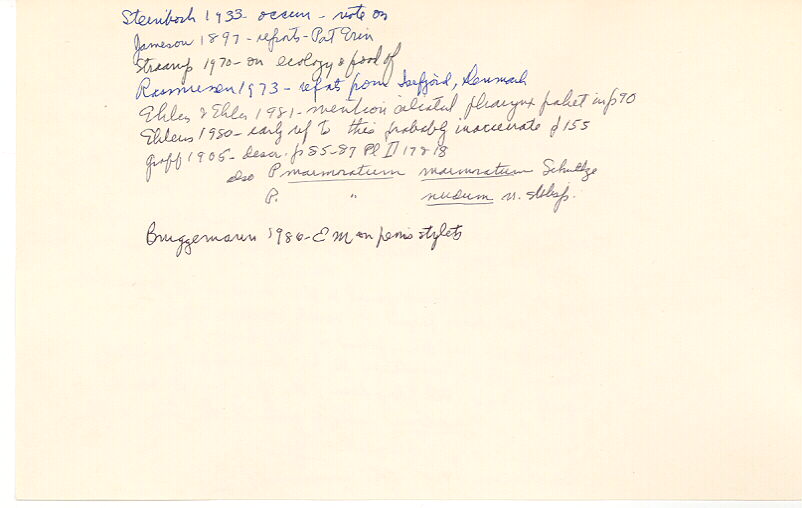 Steinbock 1933- occurr - note on
Jameson 1897 - reports - Pat Erin
Straarup 1970 - on ecology & food of
Rasmussen 1973 - repts from Isefjord, Denmark
Ehlers & Ehlers 1981 - mention ciliated pharynx pocket in p90
Ehlers 1980 - early ref to this probably inaccurate p 155
Graff 1905 - descr. p 85-87 Pl II 17 & 18
also P marmoratum marmoratum Schultze
P. " nudum n. subsp.
Bruggemann 1986 - EM on penis stylets